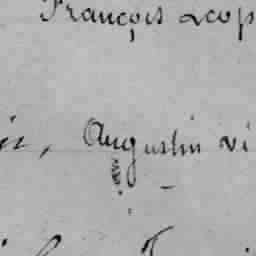 François Léop
in, Augustin vi